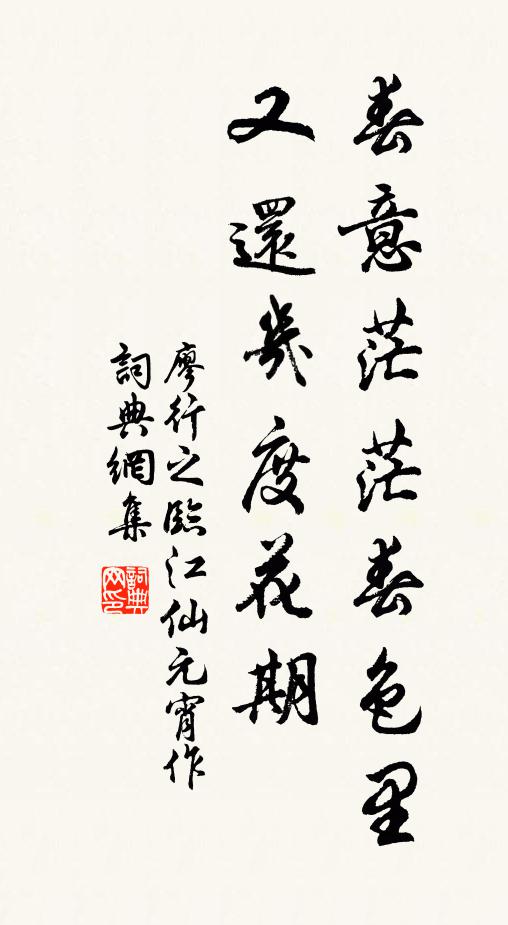 春意茫茫春色里
又還幾度花期
廖行之臨江仙元宵作
詞典網集
詞典網印